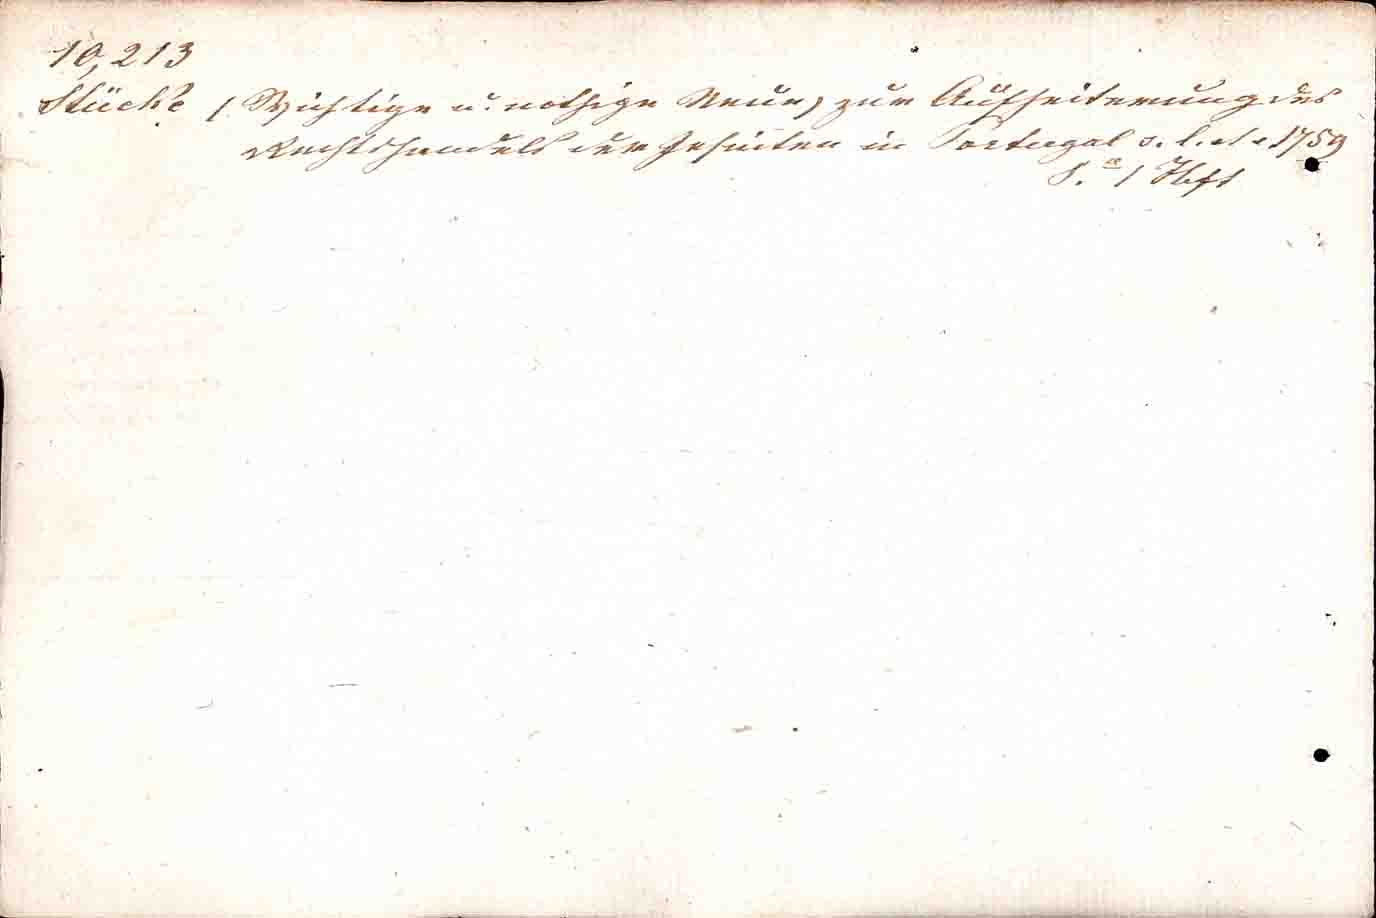 10,213
Stücke, / Wichtige u. nothige Neue, zur Aufheiterung des
Rechtshandels der Jesuiten in Portugal s. l. 1759
8.° 1 Heft